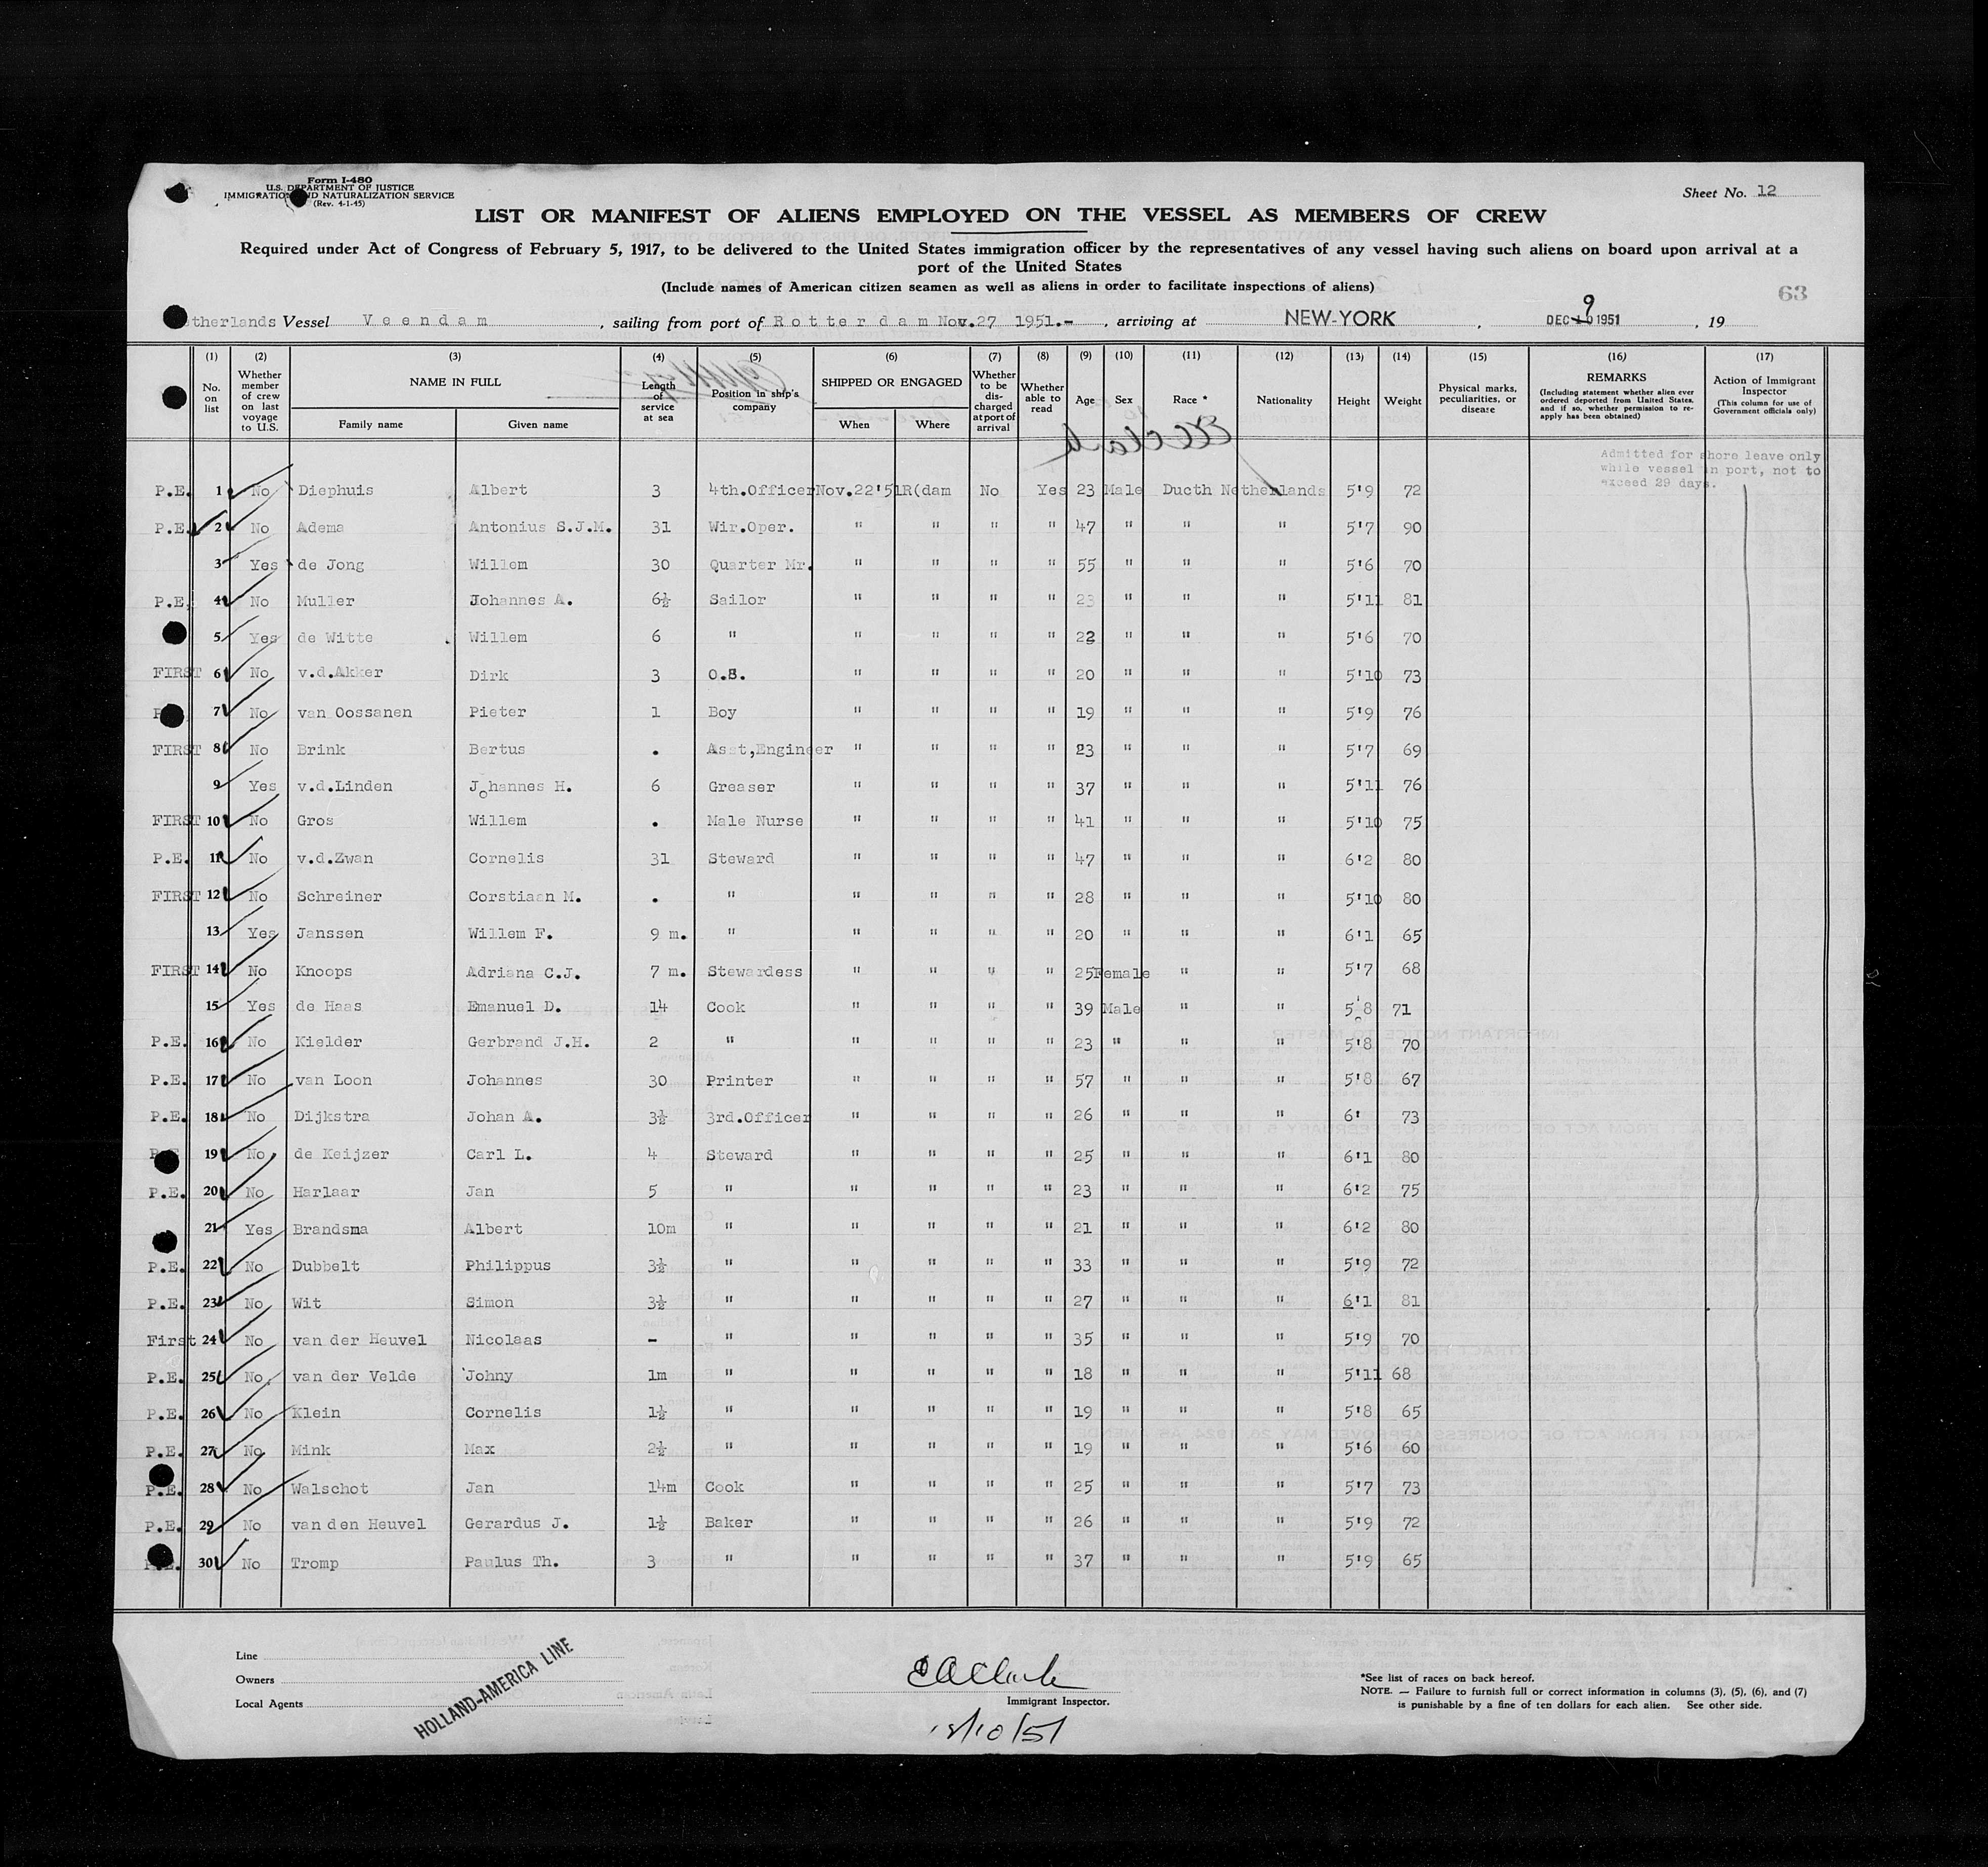 Form I-480
U.S. DEPARTMENT OF JUSTICE
IMMIGRATION AND NATURALIZATION SERVICE
(Rev. 4-1-45)
Sheet No. 12
LIST OR MANIFEST OF ALIENS EMPLOYED ON THE VESSEL AS MEMBERS OF CREW
Required under Act of Congress of February 5, 1917, to be delivered to the United States immigration officer by the representatives of any vessel having such aliens on board upon arrival at a
port of the United States
(Include names of American citizen seamen as well as aliens in order to facilitate inspections of aliens)
63
etherlands Vessel Veendam, sailing from port of Rotterdam Nov.27 1951.-, arriving at NEW-YORK, DEC 9 1951, 19
(1) (2) (3) (4) (5) (6) (7) (8) (9) (10) (11) (12) (13) (14) (15) (16) (17)
No. on list
Whether member of crew on last voyage to U.S.
NAME IN FULL
Family name Given name
Length of service at sea
Position in ship's company
SHIPPED OR ENGAGED
When Where
Whether to be discharged at port of arrival
Whether able to read
Age Sex Race * Nationality Height Weight
Physical marks, peculiarities, or disease
REMARKS
(Including statement whether alien ever ordered deported from United States, and if so, whether permission to reapply has been obtained)
Action of Immigrant Inspector
(This column for use of Government officials only)
Admitted for shore leave only
while vessel in port, not to
exceed 29 days.
P.E. 1 No Diephuis Albert 3 4th.Officer Nov.22'51 R(dam No Yes 23 Male Ducth Netherlands 5'9 72
P.E. 2 No Adema Antonius S.J.M. 31 Wir.Oper. " " " " 47 " " " 5'7 90
3 Yes de Jong Willem 30 Quarter Mr. " " " " 55 " " " 5'6 70
P.E. 4 No Muller Johannes A. 6½ Sailor " " " " 23 " " " 5'11 81
5 Yes de Witte Willem 6 " " " " " 22 " " " 5'6 70
FIRST 6 No v.d.Akker Dirk 3 O.S. " " " " 20 " " " 5'10 73
7 No van Oossanen Pieter 1 Boy " " " " 19 " " " 5'9 76
FIRST 8 No Brink Bertus . Asst,Engineer " " " " 23 " " " 5'7 69
9 Yes v.d.Linden Johannes H. 6 Greaser " " " " 37 " " " 5'11 76
FIRST 10 No Gros Willem . Male Nurse " " " " 41 " " " 5'10 75
P.E. 11 No v.d.Zwan Cornelis 31 Steward " " " " 47 " " " 6'2 80
FIRST 12 No Schreiner Corstiaan M. . " " " " " 28 " " " 5'10 80
13 Yes Janssen Willem F. 9 m. " " " " " 20 " " " 6'1 65
FIRST 14 No Knoops Adriana C.J. 7 m. Stewardess " " " " 25 Female " " 5'7 68
15 Yes de Haas Emanuel D. 14 Cook " " " " 39 Male " " 5'8 71
P.E. 16 No Kielder Gerbrand J.H. 2 " " " " " 23 " " " 5'8 70
P.E. 17 No van Loon Johannes 30 Printer " " " " 57 " " " 5'8 67
P.E. 18 No Dijkstra Johan A. 3½ 3rd.Officer " " " " 26 " " " 6' 73
19 No de Keijzer Carl L. 4 Steward " " " " 25 " " " 6'1 80
P.E. 20 No Harlaar Jan 5 " " " " " 23 " " " 6'2 75
21 Yes Brandsma Albert 10m " " " " " 21 " " " 6'2 80
P.E. 22 No Dubbelt Philippus 3½ " " " " " 33 " " " 5'9 72
P.E. 23 No Wit Simon 3½ " " " " " 27 " " " 6'1 81
First 24 No van der Heuvel Nicolaas - " " " " " 35 " " " 5'9 70
P.E. 25 No van der Velde Johny 1m " " " " " 18 " " " 5'11 68
P.E. 26 No Klein Cornelis 1½ " " " " " 19 " " " 5'8 65
P.E. 27 No Mink Max 2½ " " " " " 19 " " " 5'6 60
P.E. 28 No Walschot Jan 14m Cook " " " " 25 " " " 5'7 73
P.E. 29 No van den Heuvel Gerardus J. 1½ Baker " " " " 26 " " " 5'9 72
P.E. 30 No Tromp Paulus Th. 3 " " " " " 37 " " " 5'9 65
Line
Owners
Local Agents
HOLLAND-AMERICA LINE
Immigrant Inspector.
12/10/51
*See list of races on back hereof.
NOTE. — Failure to furnish full or correct information in columns (3), (5), (6), and (7)
is punishable by a fine of ten dollars for each alien. See other side.